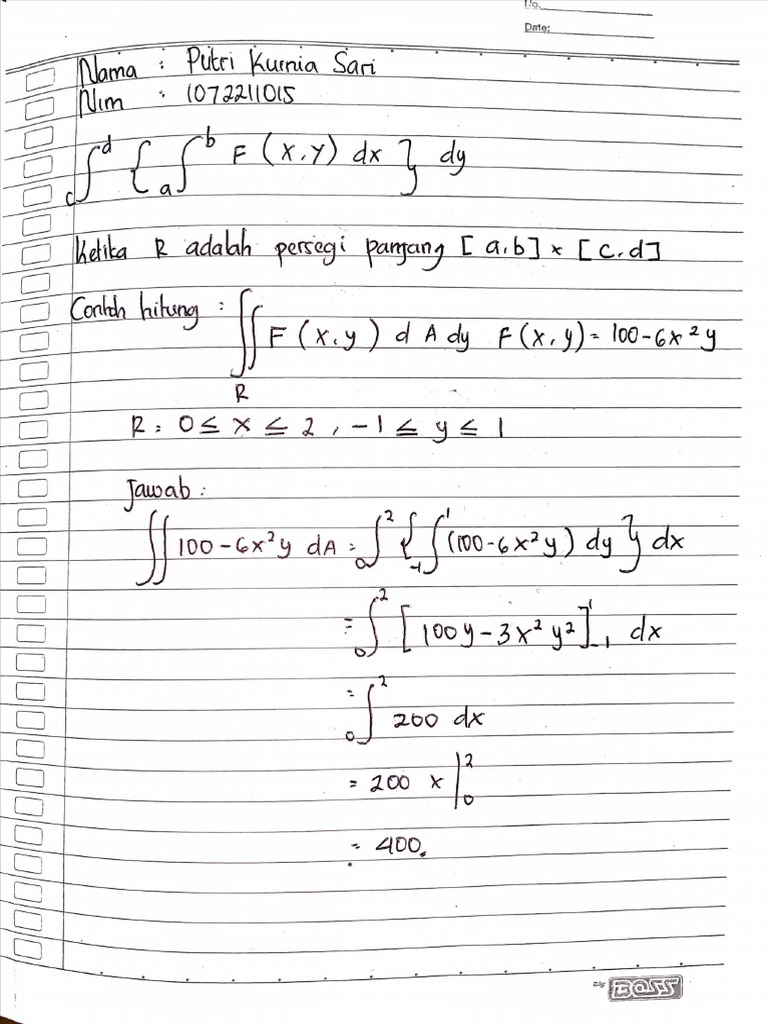 No.
Date:
Nama : Putri Kurnia Sari
Nim : 1072211015
c∫^d { a∫^b F (x,y) dx } dy
Ketika R adalah persegi panjang [a,b] × [c,d]
Contoh hitung : ∬_R F (x,y) d A dy F(x,y) = 100-6x²y
R = 0 ≤ x ≤ 2 , -1 ≤ y ≤ 1
Jawab :
∬ 100-6x²y dA = 0∫^2 { -1∫^1 (100-6x²y) dy } dx
= 0∫^2 [ 100y-3x² y² ]^1_-1 dx
= 0∫^2 200 dx
= 200 x |^2_0
= 400.
By BOSS